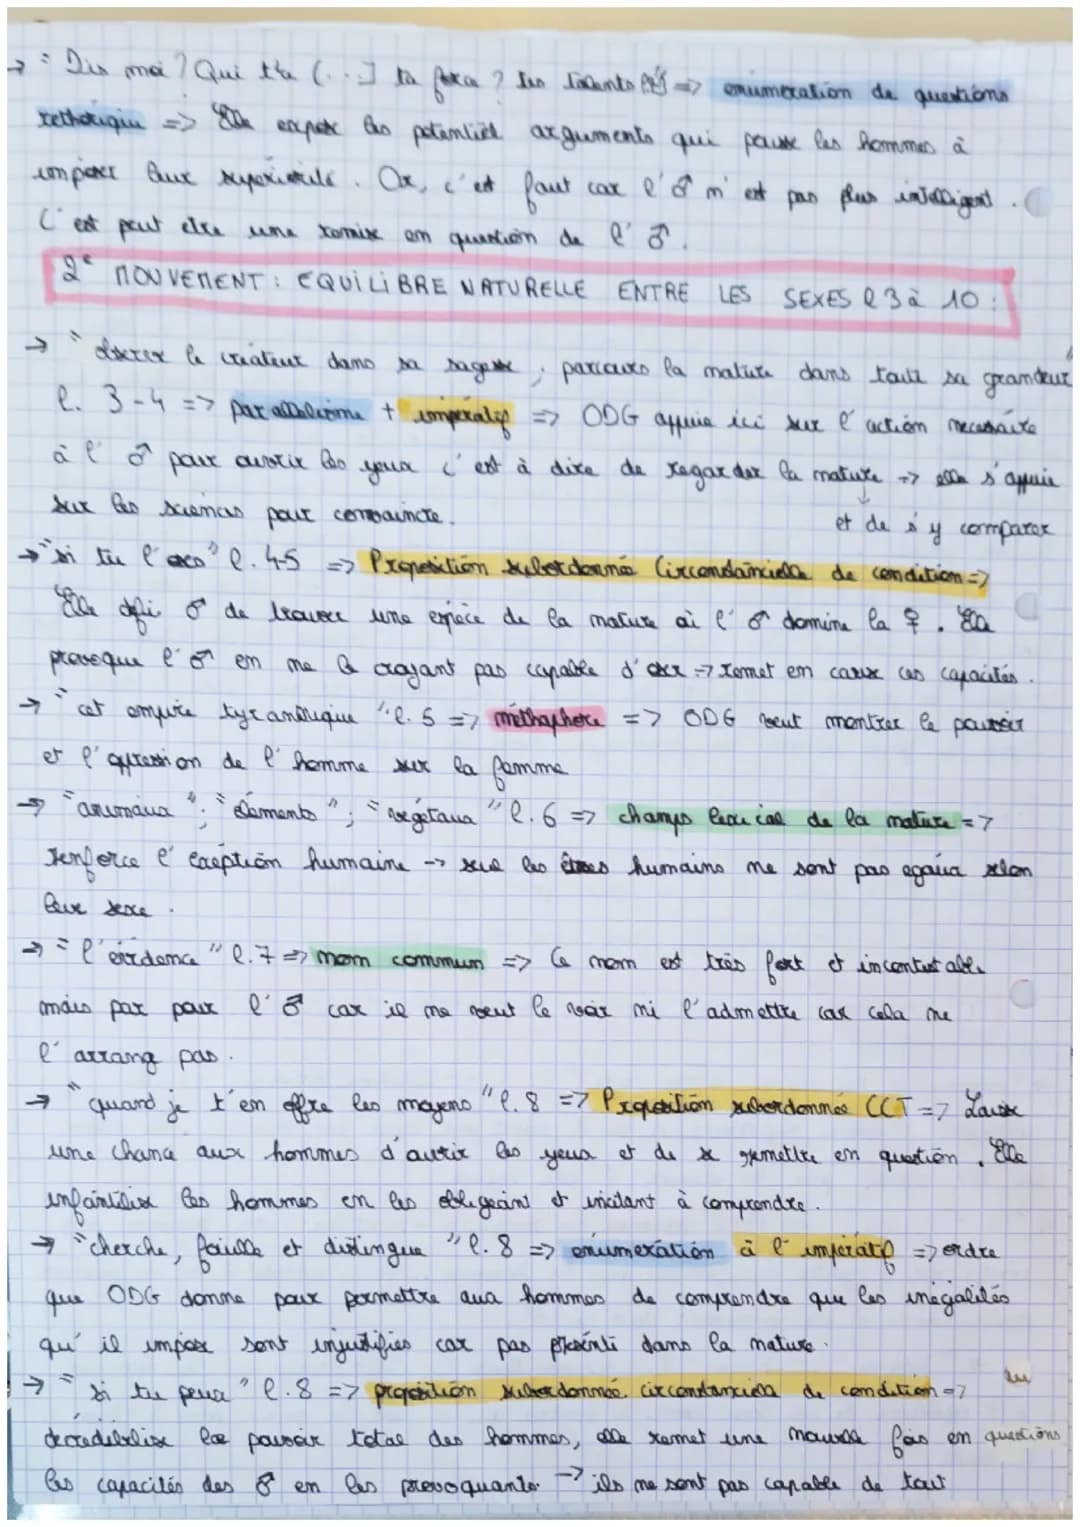 → " Dis moi ? Qui t'a (...] ta force ? tes talents => enumeration de questions
rethorique => Elle expose les potentiel arguments qui pousse les hommes à
imposer leur superiorité. Or, c'est faut car l'♂ n'est pas plus intelligent.
C'est peut etre une remise en question de l'♂.
2e MOUVEMENT : EQUILIBRE NATURELLE ENTRE LES SEXES l 3 à 10 :
→ " observe le créateur dans sa sagesse ; parcours la nature dans toute sa grandeur
l. 3-4 => parallelisme + imperatif => ODG appuie ici sur l'action necessaire
à l'♂ pour ouvrir les yeux c'est à dire de regarder la nature -> elle s'appuie
sur les sciences pour convaincre.
et de s'y comparer
→ "si tu l'oses" l. 4-5 => Proposition subordonné Circonstancielle de condition =>
Elle défi ♂ de trouver une espèce de la nature où l'♂ domine la ♀. Elle
provoque l'♂ en ne le croyant pas capable d'oser -> remet en cause ces capacités.
→ " cet empire tyrannique " l. 5 => méthaphore => ODG veut montrer le pouvoir
et l'oppression de l'homme sur la femme
→ "animaux" ; "élements" ; "végétaux" l. 6 => champs lexical de la nature =>
renforce l'exeption humaine -> seul les êtres humains ne sont pas egaux selon
leur sexe.
→ " l'evidence " l. 7 => nom commun => Ce nom est très fort et incontestable
mais pas pour l'♂ car il ne veut le voir ni l'admettre car cela ne
l'arrang pas.
→ " quand je t'en offre les moyens " l. 8 => Proposition subordonnée CCT => Laisse
une chance aux hommes d'ouvrir les yeux et de se remettre en question. Elle
infantilise les hommes en les obligeant et incitant à comprendre.
→ " cherche, fouille et distingue " l. 8 => enumération à l'impératif => ordre
que ODG donne pour permettre aux hommes de comprendre que les inégalités
qu'il impose sont injustifiés car pas présents dans la nature.
→ " si tu peux " l. 8 => proposition subordonnée circonstanciell de condition =>
decredibilise le pouvoir total des hommes, elle remet une nouvelle fois en questions
les capacités des ♂ en les provoquants -> ils ne sont pas capable de tout